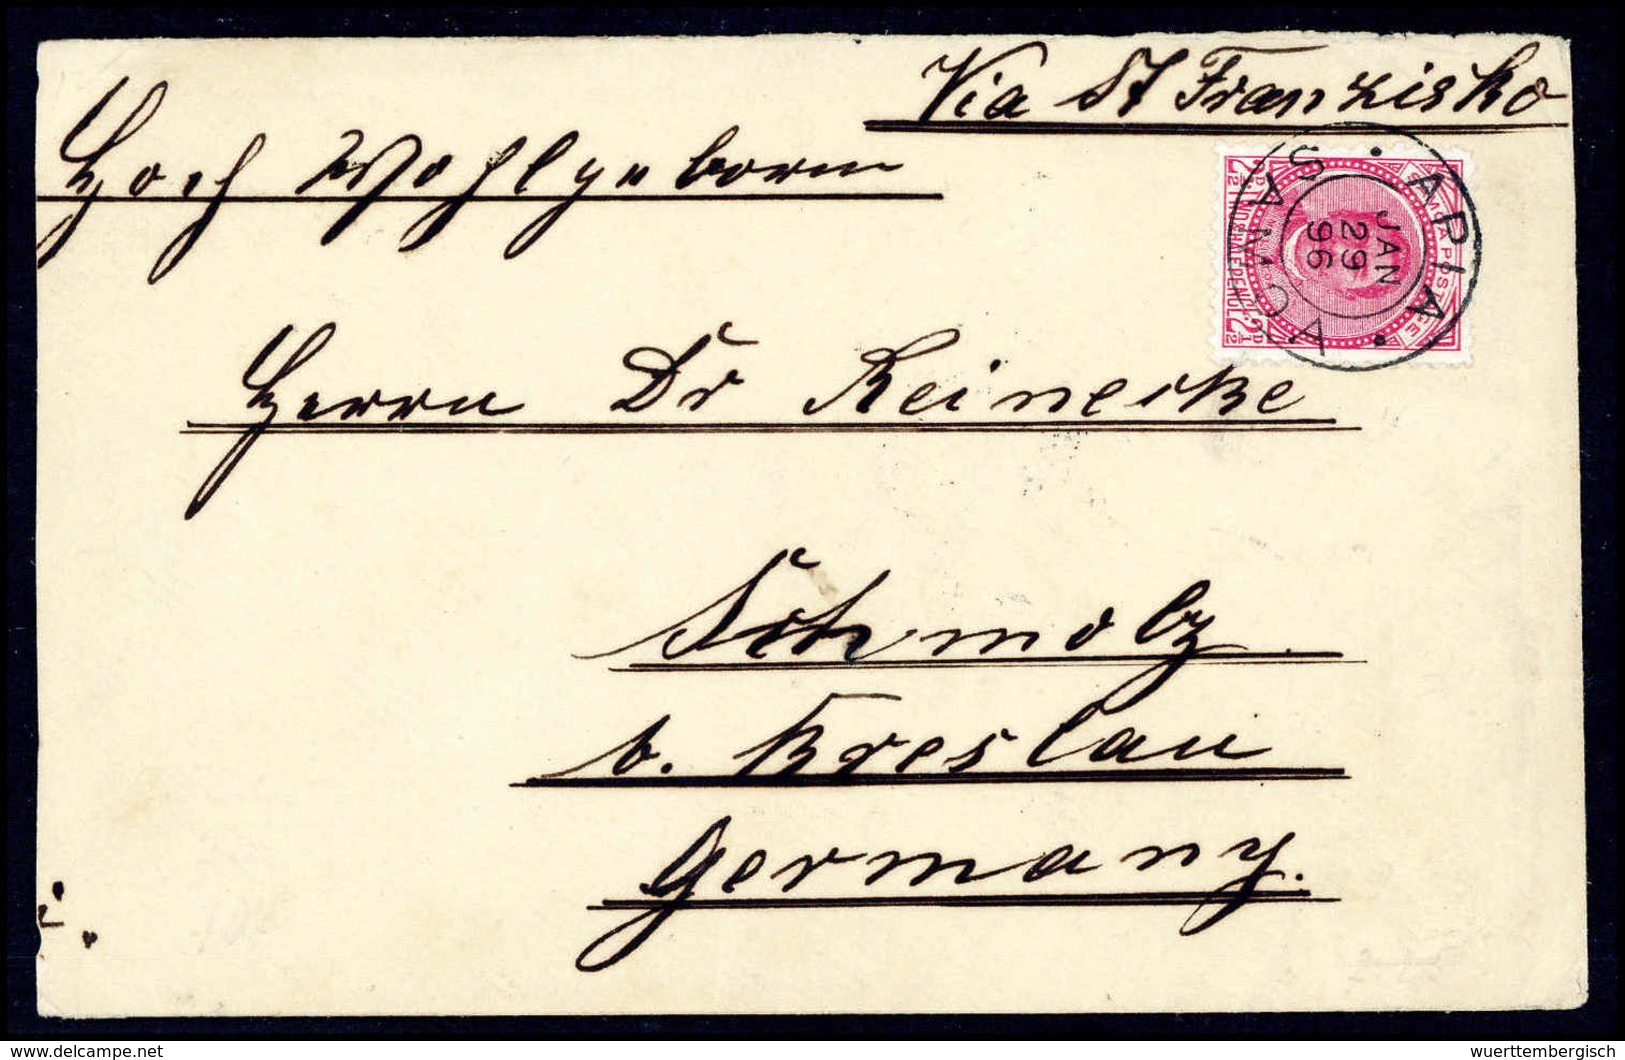 Via St Franzisko
Hoch Wohlgeborn
SAMOA POSTAGE
TWO & HALF PENCE
2½D
2½D
APIA
SAMOA
JAN
29
96
Herrn Dr Reinecke
Schmolz
b. Breslau
Germany.
delcampe.net
wuerttembergisch